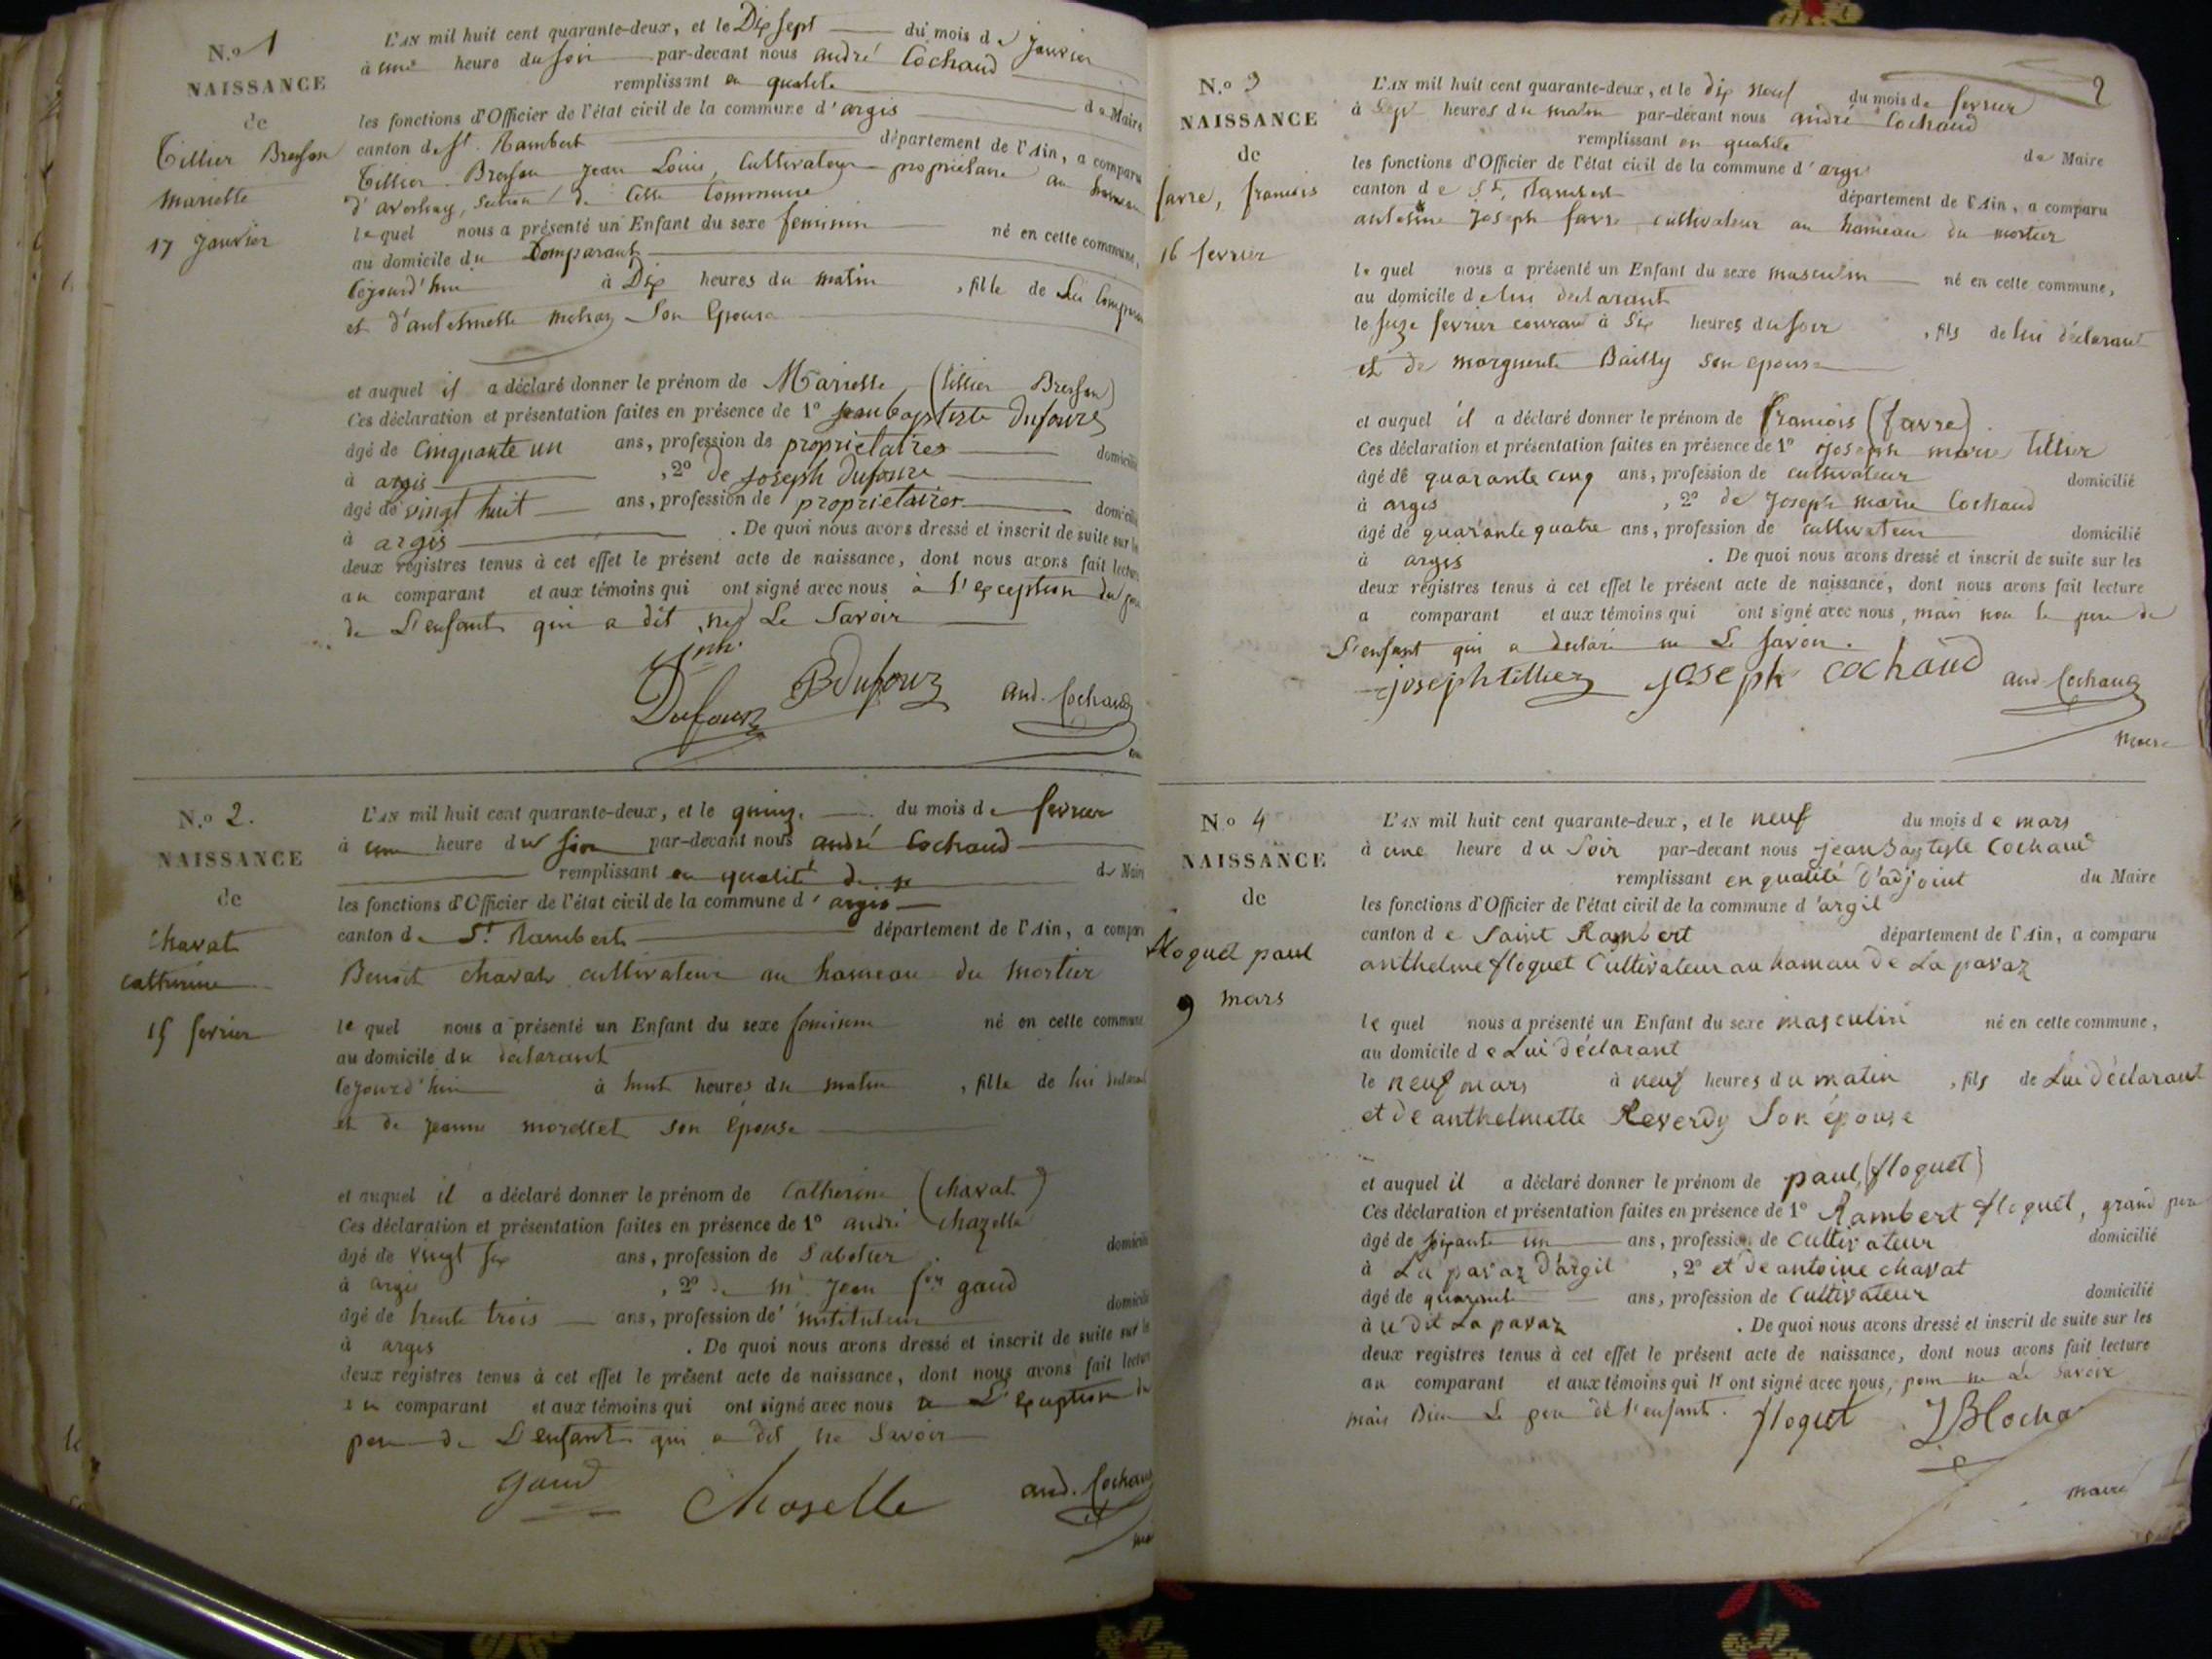 N.o 1
NAISSANCE
de
Tillier Bresson
Mariette
17 janvier
L'AN mil huit cent quarante-deux, et le Dix sept du mois de janvier
à une heure du soir par-devant nous andré Cochaud
remplissant en qualité de Maire
les fonctions d'Officier de l'état civil de la commune d'argis
canton de St. Rambert département de l'Ain, a comparu
Tillier Bresson Jean Louis, Cultivateur proprietaire au hameau
d'averliaz, section de Cette Commune
lequel nous a présenté un Enfant du sexe feminin né en cette commune,
au domicile du Comparant
cejourd'hui à Dix heures du matin , fille de Lui Comparant
et d'antelmette Son Epouse
et auquel il a déclaré donner le prénom de Mariette (tillier Bresson)
Ces déclaration et présentation faites en présence de 1o jean baptiste Dufour
âgé de Cinquante un ans, profession de proprietaires domicilié
à argis , 2o de joseph Dufour
âgé de vingt huit ans, profession de proprietaires domicilié
à argis . De quoi nous avons dressé et inscrit de suite sur les
deux registres tenus à cet effet le présent acte de naissance, dont nous avons fait lecture
au comparant et aux témoins qui ont signé avec nous à L'exception du père
de L'enfant qui a dit ne Le Savoir
Dufour BDufour and. Cochaud
N.o 2.
NAISSANCE
de
Chavat
Catherine
15 fevrier
L'AN mil huit cent quarante-deux, et le quinze du mois de fevrier
à une heure du soir par-devant nous andré Cochaud
remplissant en qualité de Maire
les fonctions d'Officier de l'état civil de la commune d'argis
canton de St. Rambert département de l'Ain, a comparu
Benoit Chavat cultivateur au hameau du mortier
lequel nous a présenté un Enfant du sexe feminin né en cette commune
au domicile du declarant
cejourd'hui à huit heures du matin , fille de lui declarant
et de jeanne morellet son Epouse
et auquel il a déclaré donner le prénom de Catherine (chavat)
Ces déclaration et présentation faites en présence de 1o andré chazelle
âgé de vingt six ans, profession de Sabotier domicilié
à argis , 2o de mr jean fois gaud
âgé de trente trois ans, profession de instituteur domicilié
à argis . De quoi nous avons dressé et inscrit de suite sur les
deux registres tenus à cet effet le présent acte de naissance, dont nous avons fait lecture
au comparant et aux témoins qui ont signé avec nous a L'exception du
pere de L'enfant qui a dit ne Savoir
gaud Choselle and. Cochaud
N.o 3
NAISSANCE
de
favre, francois
16 fevrier
2
L'AN mil huit cent quarante-deux, et le dix neuf du mois de fevrier
à Sept heures du matin par-devant nous andré Cochaud
remplissant en qualité de Maire
les fonctions d'Officier de l'état civil de la commune d'argis
canton de St. Rambert département de l'Ain, a comparu
antoine joseph favre cultivateur au hameau du mortier
lequel nous a présenté un Enfant du sexe masculin né en cette commune,
au domicile de lui declarant
le seize fevrier courant à Six heures du soir , fils de lui déclarant
et de marguerite Bailly son epouse
et auquel il a déclaré donner le prénom de francois (favre)
Ces déclaration et présentation faites en présence de 1o joseph marie tillier
âgé de quarante cinq ans, profession de cultivateur domicilié
à argis , 2o de joseph marie Cochaud
âgé de quarante quatre ans, profession de cultivateur domicilié
à argis . De quoi nous avons dressé et inscrit de suite sur les
deux registres tenus à cet effet le présent acte de naissance, dont nous avons fait lecture
a comparant et aux témoins qui ont signé avec nous, mais non le pere de
L'enfant qui a declaré ne Le Savoir.
joseph tillier joseph cochaud and Cochaud
maire
No 4
NAISSANCE
de
floquet paul
9 mars
L'AN mil huit cent quarante-deux, et le neuf du mois de mars
à une heure du Soir par-devant nous jean Baptiste Cochaud
remplissant en qualité d'adjoint du Maire
les fonctions d'Officier de l'état civil de la commune d'argil
canton de Saint Rambert département de l'Ain, a comparu
anthelme floquet Cultivateur au hamau de La pavaz
lequel nous a présenté un Enfant du sexe masculin né en cette commune,
au domicile de Lui déclarant
le neuf mars à neuf heures du matin , fils de Lui déclarant
et de anthelmette Reverdy Son épouse
et auquel il a déclaré donner le prénom de paul (floquet)
Ces déclaration et présentation faites en présence de 1o Rambert floquet, grand pere
âgé de soixante un ans, profession de Cultivateur domicilié
à La pavaz d'argil , 2o et de antoine chavat
âgé de quarante ans, profession de Cultivateur domicilié
à u dit La pavaz . De quoi nous avons dressé et inscrit de suite sur les
deux registres tenus à cet effet le présent acte de naissance, dont nous avons fait lecture
au comparant et aux témoins qui n'ont signé avec nous, pour ne Le Savoir
mais Bien Le pere de L'enfant. floquet JBCocha
maire